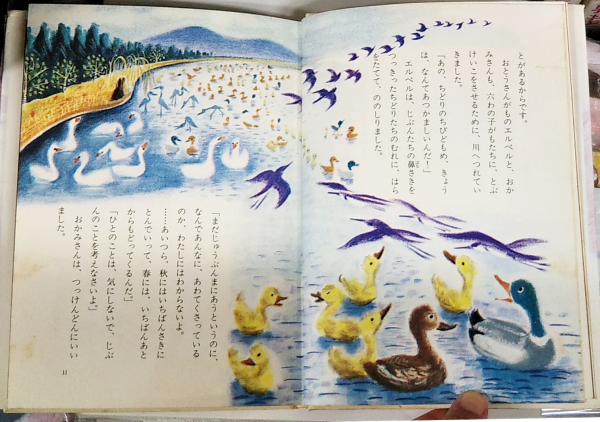 とがあるからです。
おとうさんがものエルベルと、おか
みさんも、六わの子がもたちに、とぶ
けいこをさせるために、川へつれてい
きました。
「あの、ちどりのちびどもめ、きょう
は、なんてあつかましいんだ！」
エルベルは、じぶんたちの鼻さきを
つっきったちどりたちのむれに、はら
をたてて、ののしりました。
「まだじゅうぶんまにあうというのに、
なんであんなに、あわてくさっている
のか、わたしにはわからないよ。
……あいつら、秋にはいちばんさきに
とんでいって、春には、いちばんあと
からもどってくるんだ。」
「ひとのことは、気にしないで、じぶ
んのことを考えなさいよ。」
おかみさんは、つっけんどんにいい
ました。
11